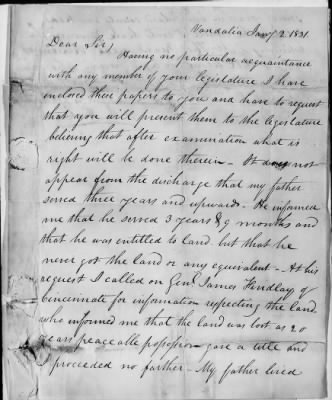 Vandalia Jany 2. 1831
Dear Sir,
Having no particular acquaintance
with any member of your legislature I have
enclosed these papers to you and have to request
that you will present them to the legislature
believing that after examination what is
right will be done therein - It does not
appear from the discharge that my father
served three years and upwards - He informed
me that he served 3 years & 9 months and
that he was entitled to land but that he
never got the land or any equivalent - At his
request I called on Genl James Findlay of
Cincinnati for information respecting the land
who informed me that the land was lost as 20
years peaceable possession gave a title and
I proceeded no further - My father lived